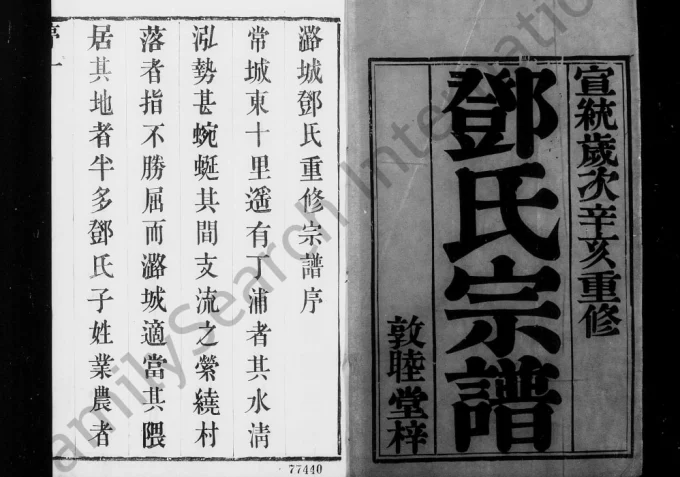 宣統歲次辛亥重修
鄧氏宗譜
敦睦堂梓
潞城鄧氏重修宗譜序
常城東十里遥有丁浦者其水清
泓勢甚蜿蜒其間支流之縈繞村
落者指不勝屈而潞城適當其隈
居其地者半多鄧氏子姓業農者
序一
77440
FamilySearch International